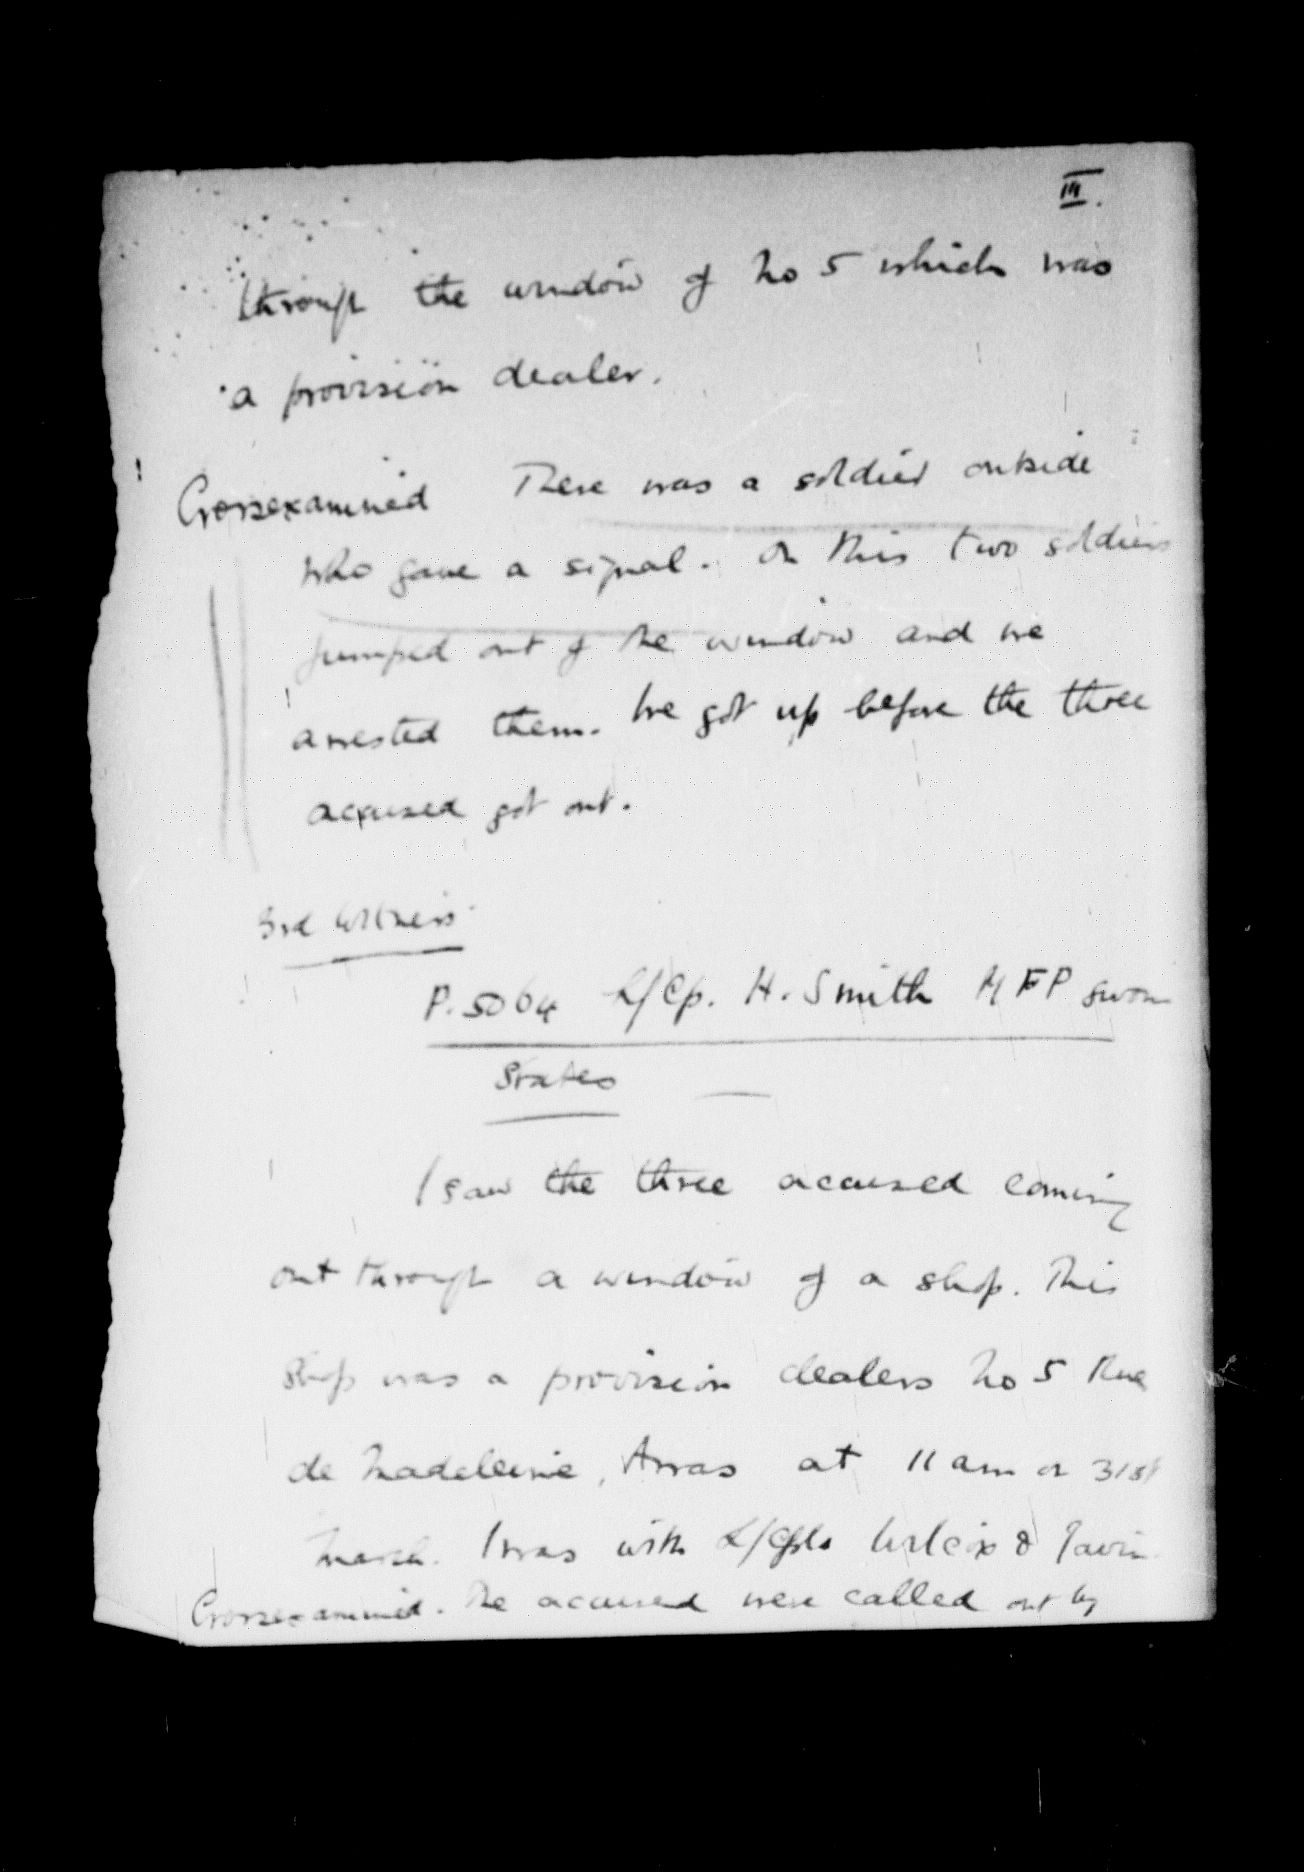 III.
through the window of No 5 which was
a provision dealer.
Crossexamined There was a soldier outside
who gave a signal. On this two soldiers
jumped out of the window and we
arrested them. We got up before the three
accused got out.
3rd Witness
P.5064 L/Cp. H. Smith MFP sworn
States —
I saw the three accused coming
out through a window of a shop. This
shop was a provision dealers No 5 Rue
de Madeleine, Arras at 11 am on 31st
March. I was with L/Cpls Wilcox &
Crossexamined. The accused were called out by